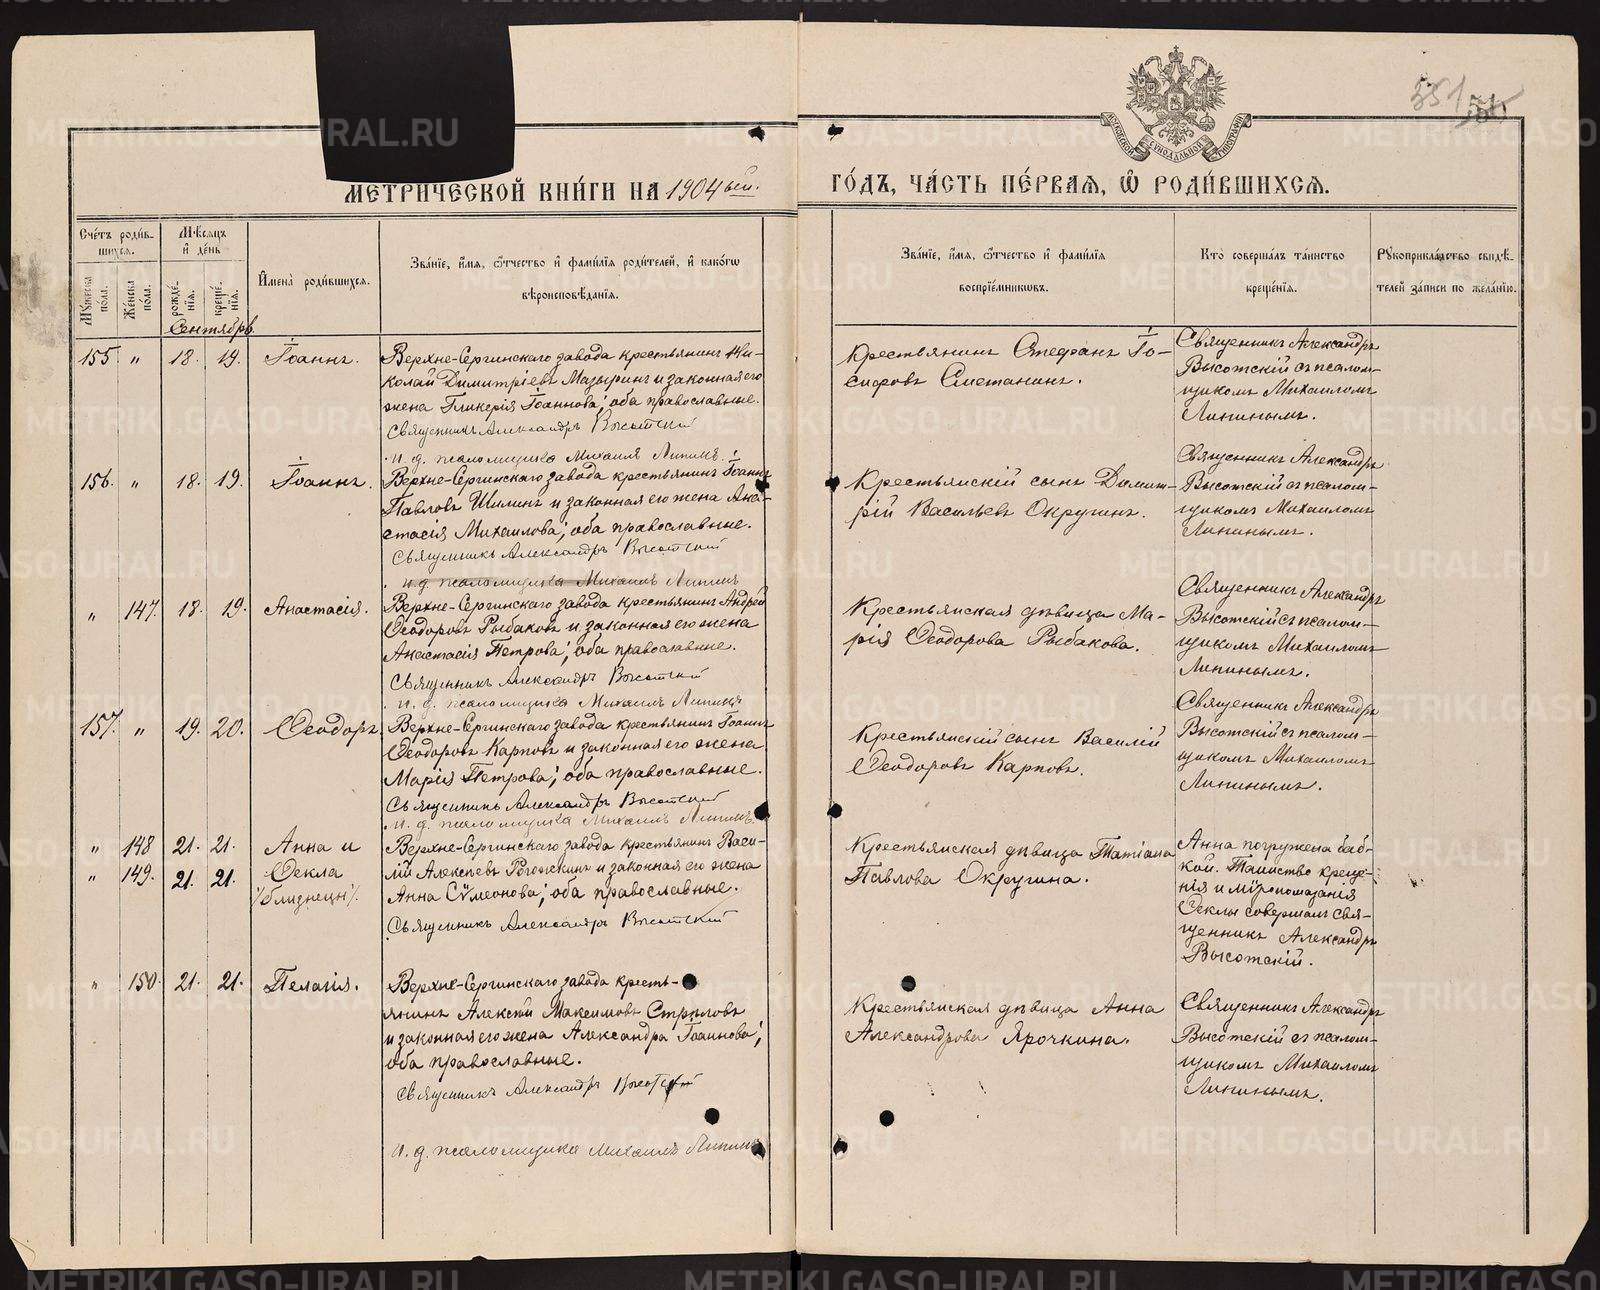 351
МЕТРИЧЕСКОЙ КНИГИ НА 1904ый.
ГОДЪ, ЧАСТЬ ПЕРВАЯ, Ѿ РОДИВШИХСЯ.
МОСКОВСКОЙ СѴНОДАЛЬНОЙ ТИПОГРАФІИ
Счетъ родив-
шихся.
Мужеска пола.
Женска пола.
Мѣсяцъ
и день
рожде-
нія.
креще-
нія.
Имена родившихся.
Званіе, имя, ѿтчество и фамилія родителей, и какогѡ
вѣроисповѣданія.
Званіе, имя, ѿтчество и фамилія
воспріемниковъ.
Кто совершалъ таинство
крещенія.
Рукоприкладство свидѣ-
телей записи по желанію.
Сентябрь.
155. " 18. 19. Іоаннъ.
Верхне-Сергинскаго завода крестьянинъ Ни-
колай Димитріевъ Мазыринъ и законная его
жена Гликерія Іоаннова; оба православные.
Священникъ Александръ Высотскій
и. д. псаломщика Михаилъ Липинъ.
Крестьянинъ Стефанъ Іо-
сифовъ Сметанинъ.
Священникъ Александръ
Высотскій съ псалом-
щикомъ Михаиломъ
Липинымъ.
156. " 18. 19. Іоаннъ.
Верхне-Сергинскаго завода крестьянинъ Іоаннъ
Павловъ Шилинъ и законная его жена Ана-
стасія Михаилова; оба православные.
Священникъ Александръ Высотскій
и. д. псаломщика Михаилъ Липинъ
Крестьянскій сынъ Димит-
рій Васильевъ Округинъ.
Священникъ Александръ
Высотскій съ псалом-
щикомъ Михаиломъ
Липинымъ.
" 147. 18. 19. Анастасія.
Верхне-Сергинскаго завода крестьянинъ Андрей
Ѳеодоровъ Рыбаковъ и законная его жена
Анастасія Петрова; оба православные.
Священникъ Александръ Высотскій
и. д. псаломщика Михаилъ Липинъ
Крестьянская дѣвица Ма-
рія Ѳеодорова Рыбакова.
Священникъ Александръ
Высотскій съ псалом-
щикомъ Михаиломъ
Липинымъ.
157. " 19. 20. Ѳеодоръ.
Верхне-Сергинскаго завода крестьянинъ Іоаннъ
Ѳеодоровъ Карповъ и законная его жена
Марія Петрова; оба православные.
Священникъ Александръ Высотскій
и. д. псаломщика Михаилъ Липинъ.
Крестьянскій сынъ Василій
Ѳеодоровъ Карповъ.
Священникъ Александръ
Высотскій съ псалом-
щикомъ Михаиломъ
Липинымъ.
" 148 21. 21. Анна и
" 149. 21. 21. Ѳекла
/близнецы/.
Верхне-Сергинскаго завода крестьянинъ Васи-
лій Алексѣевъ Рогожкинъ и законная его жена
Анна Сѵмеонова; оба православные.
Священникъ Александръ Высотскій
Крестьянская дѣвица Татіана
Павлова Округина.
Анна погружена баб-
кой. Таинство креще-
нія и мѵропомазанія
Ѳеклы совершалъ свя-
щенникъ Александръ
Высотскій.
" 150. 21. 21. Пелагія.
Верхне-Сергинскаго завода кресть-
янинъ Алексѣй Максимовъ Стрѣловъ
и законная его жена Александра Іоаннова;
оба православные.
Священникъ Александръ Высотскій
и. д. псаломщика Михаилъ Липинъ
Крестьянская дѣвица Анна
Александрова Ярочкина.
Священникъ Александръ
Высотскій съ псалом-
щикомъ Михаиломъ
Липинымъ.
METRIKI.GASO-URAL.RU